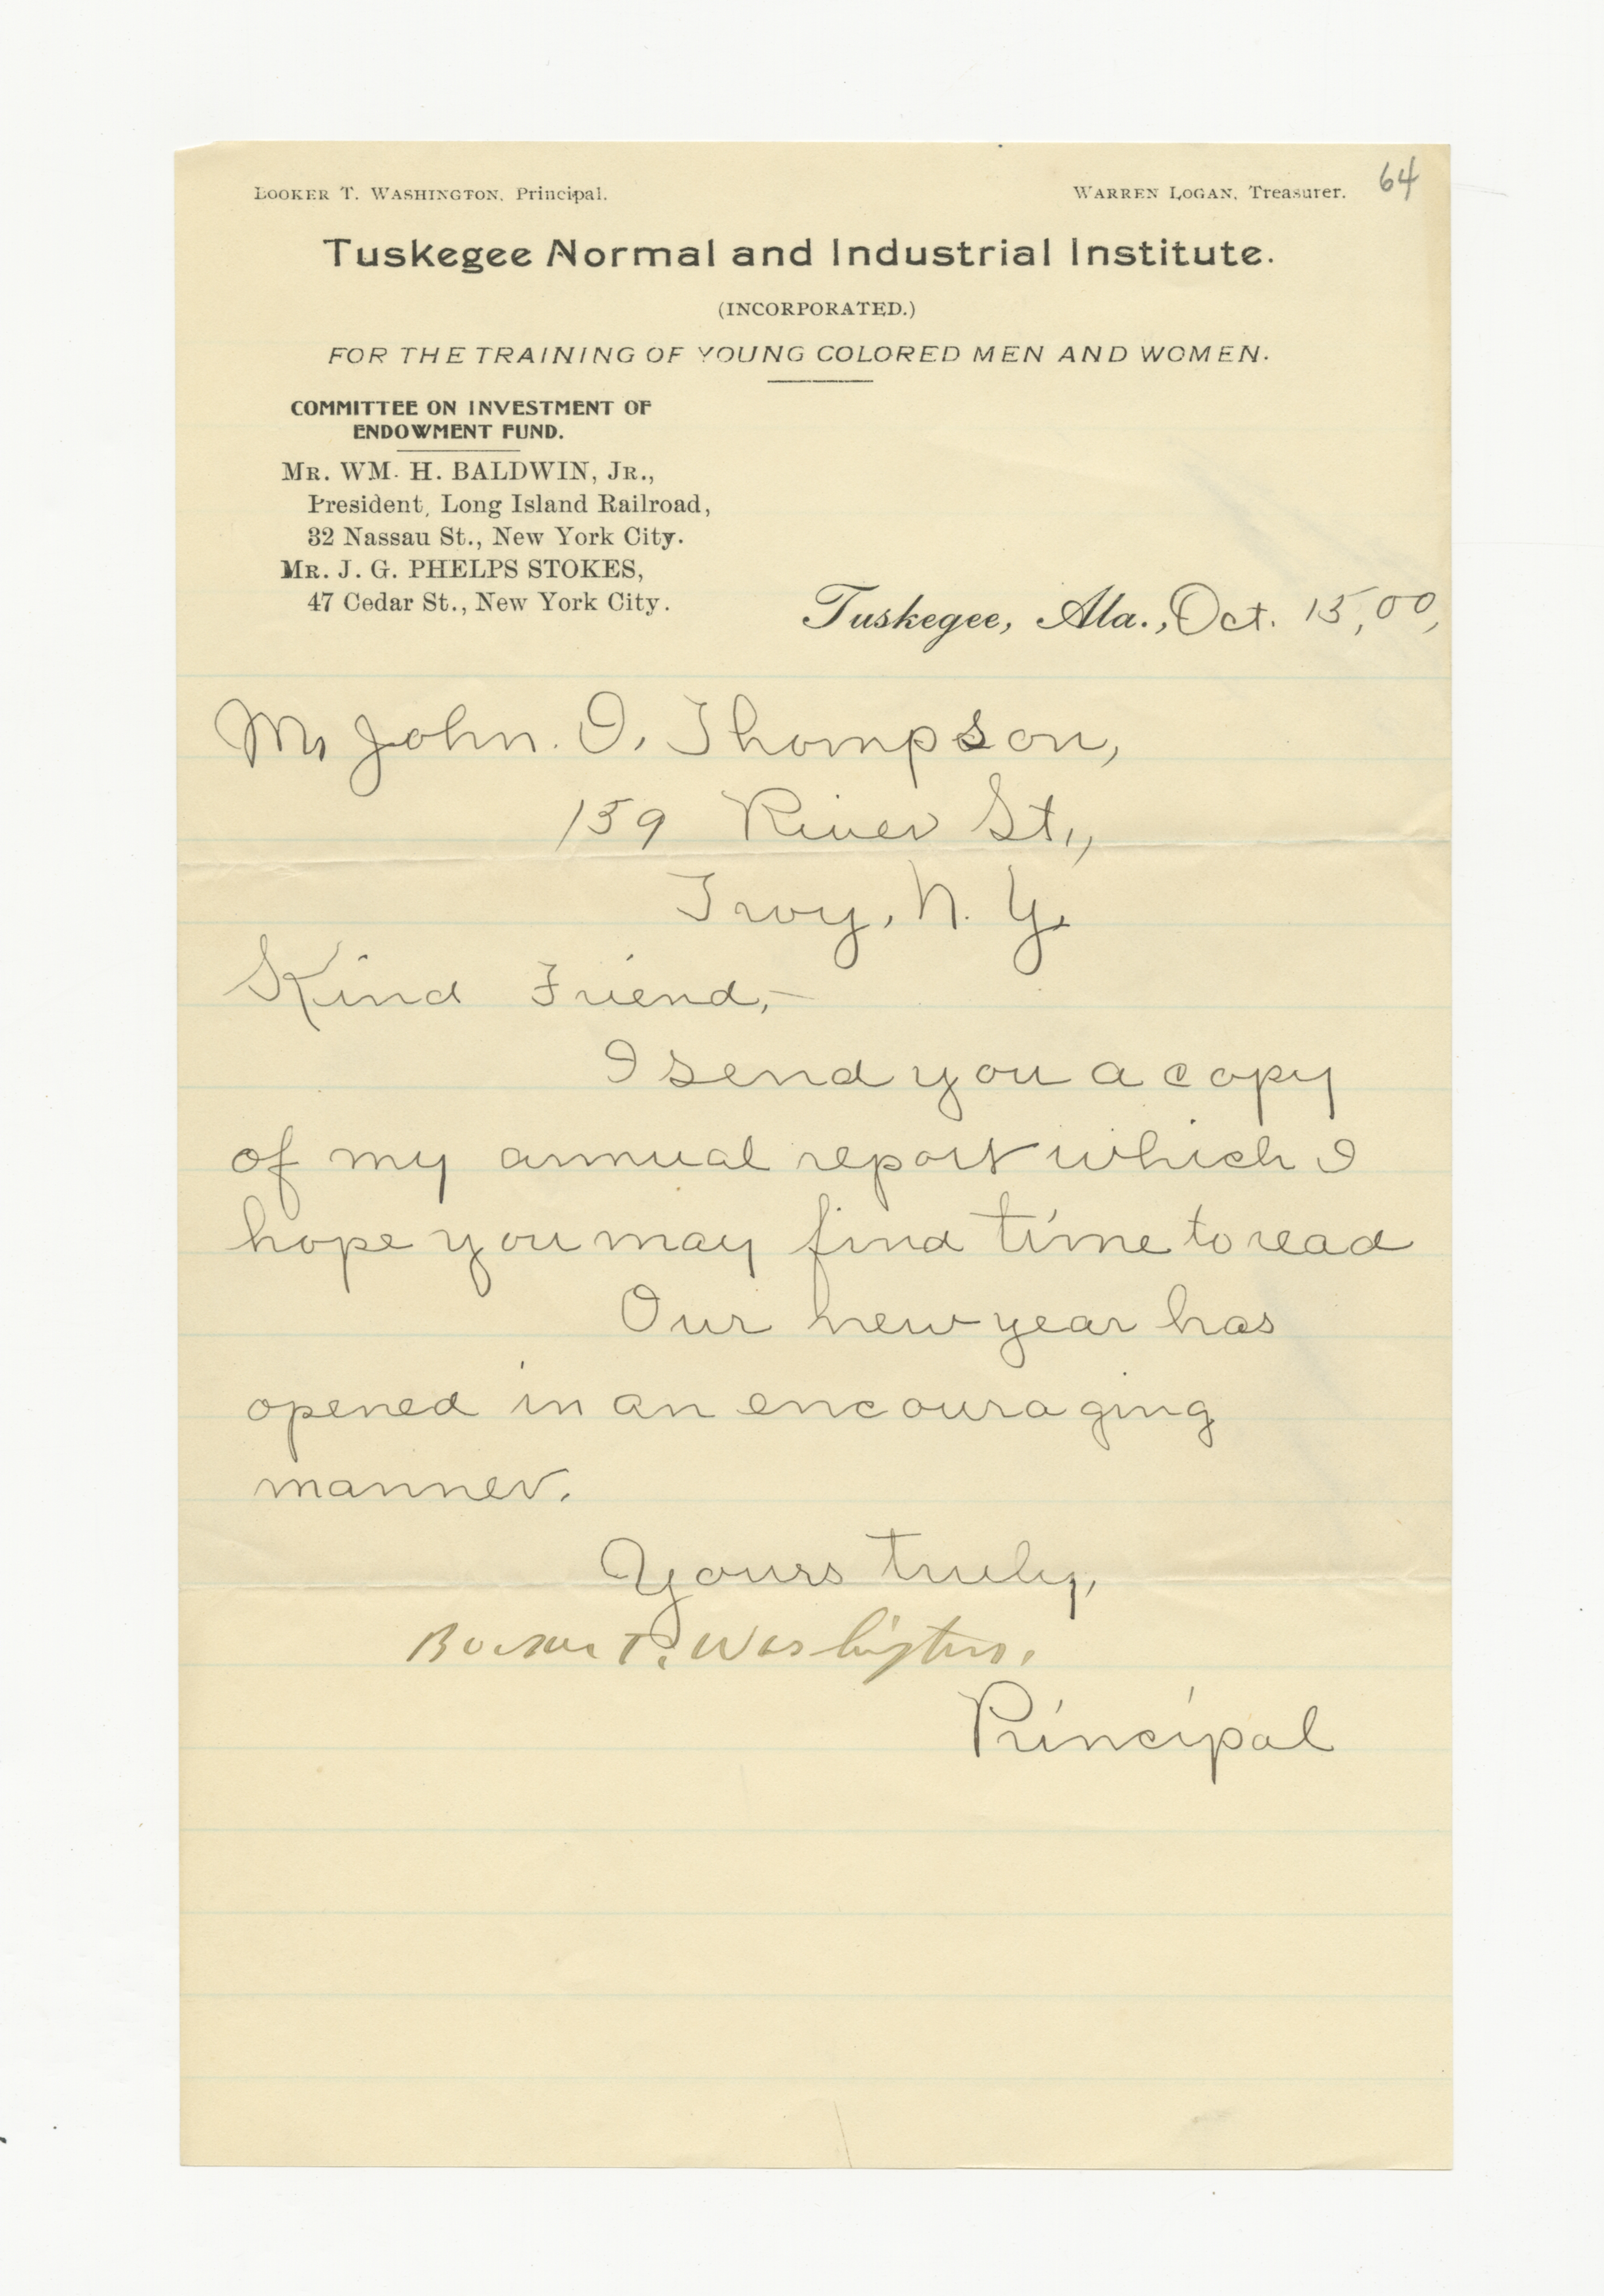 BOOKER T. WASHINGTON, Principal. WARREN LOGAN, Treasurer. 64
Tuskegee Normal and Industrial Institute.
(INCORPORATED.)
FOR THE TRAINING OF YOUNG COLORED MEN AND WOMEN.
COMMITTEE ON INVESTMENT OF
ENDOWMENT FUND.
MR. WM. H. BALDWIN, JR.,
President, Long Island Railroad,
32 Nassau St., New York City.
MR. J. G. PHELPS STOKES,
47 Cedar St., New York City.
Tuskegee, Ala., Oct. 15, 00,
Mr John. I. Thompson,
159 River St.,
Troy, N. Y.
Kind Friend,-
I send you a copy
of my annual report which I
hope you may find time to read
Our new year has
opened in an encouraging
manner.
Yours truly,
Booker T. Washington.
Principal